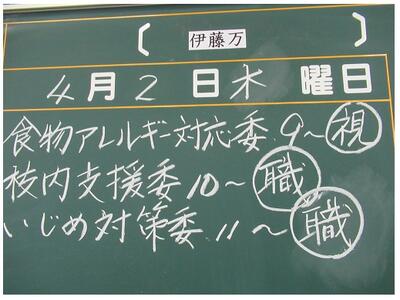 〔 伊藤万 〕
4月2日木曜日
食物アレルギー対応委 9〜 視
校内支援委 10〜 職
いじめ対策委 11〜 職